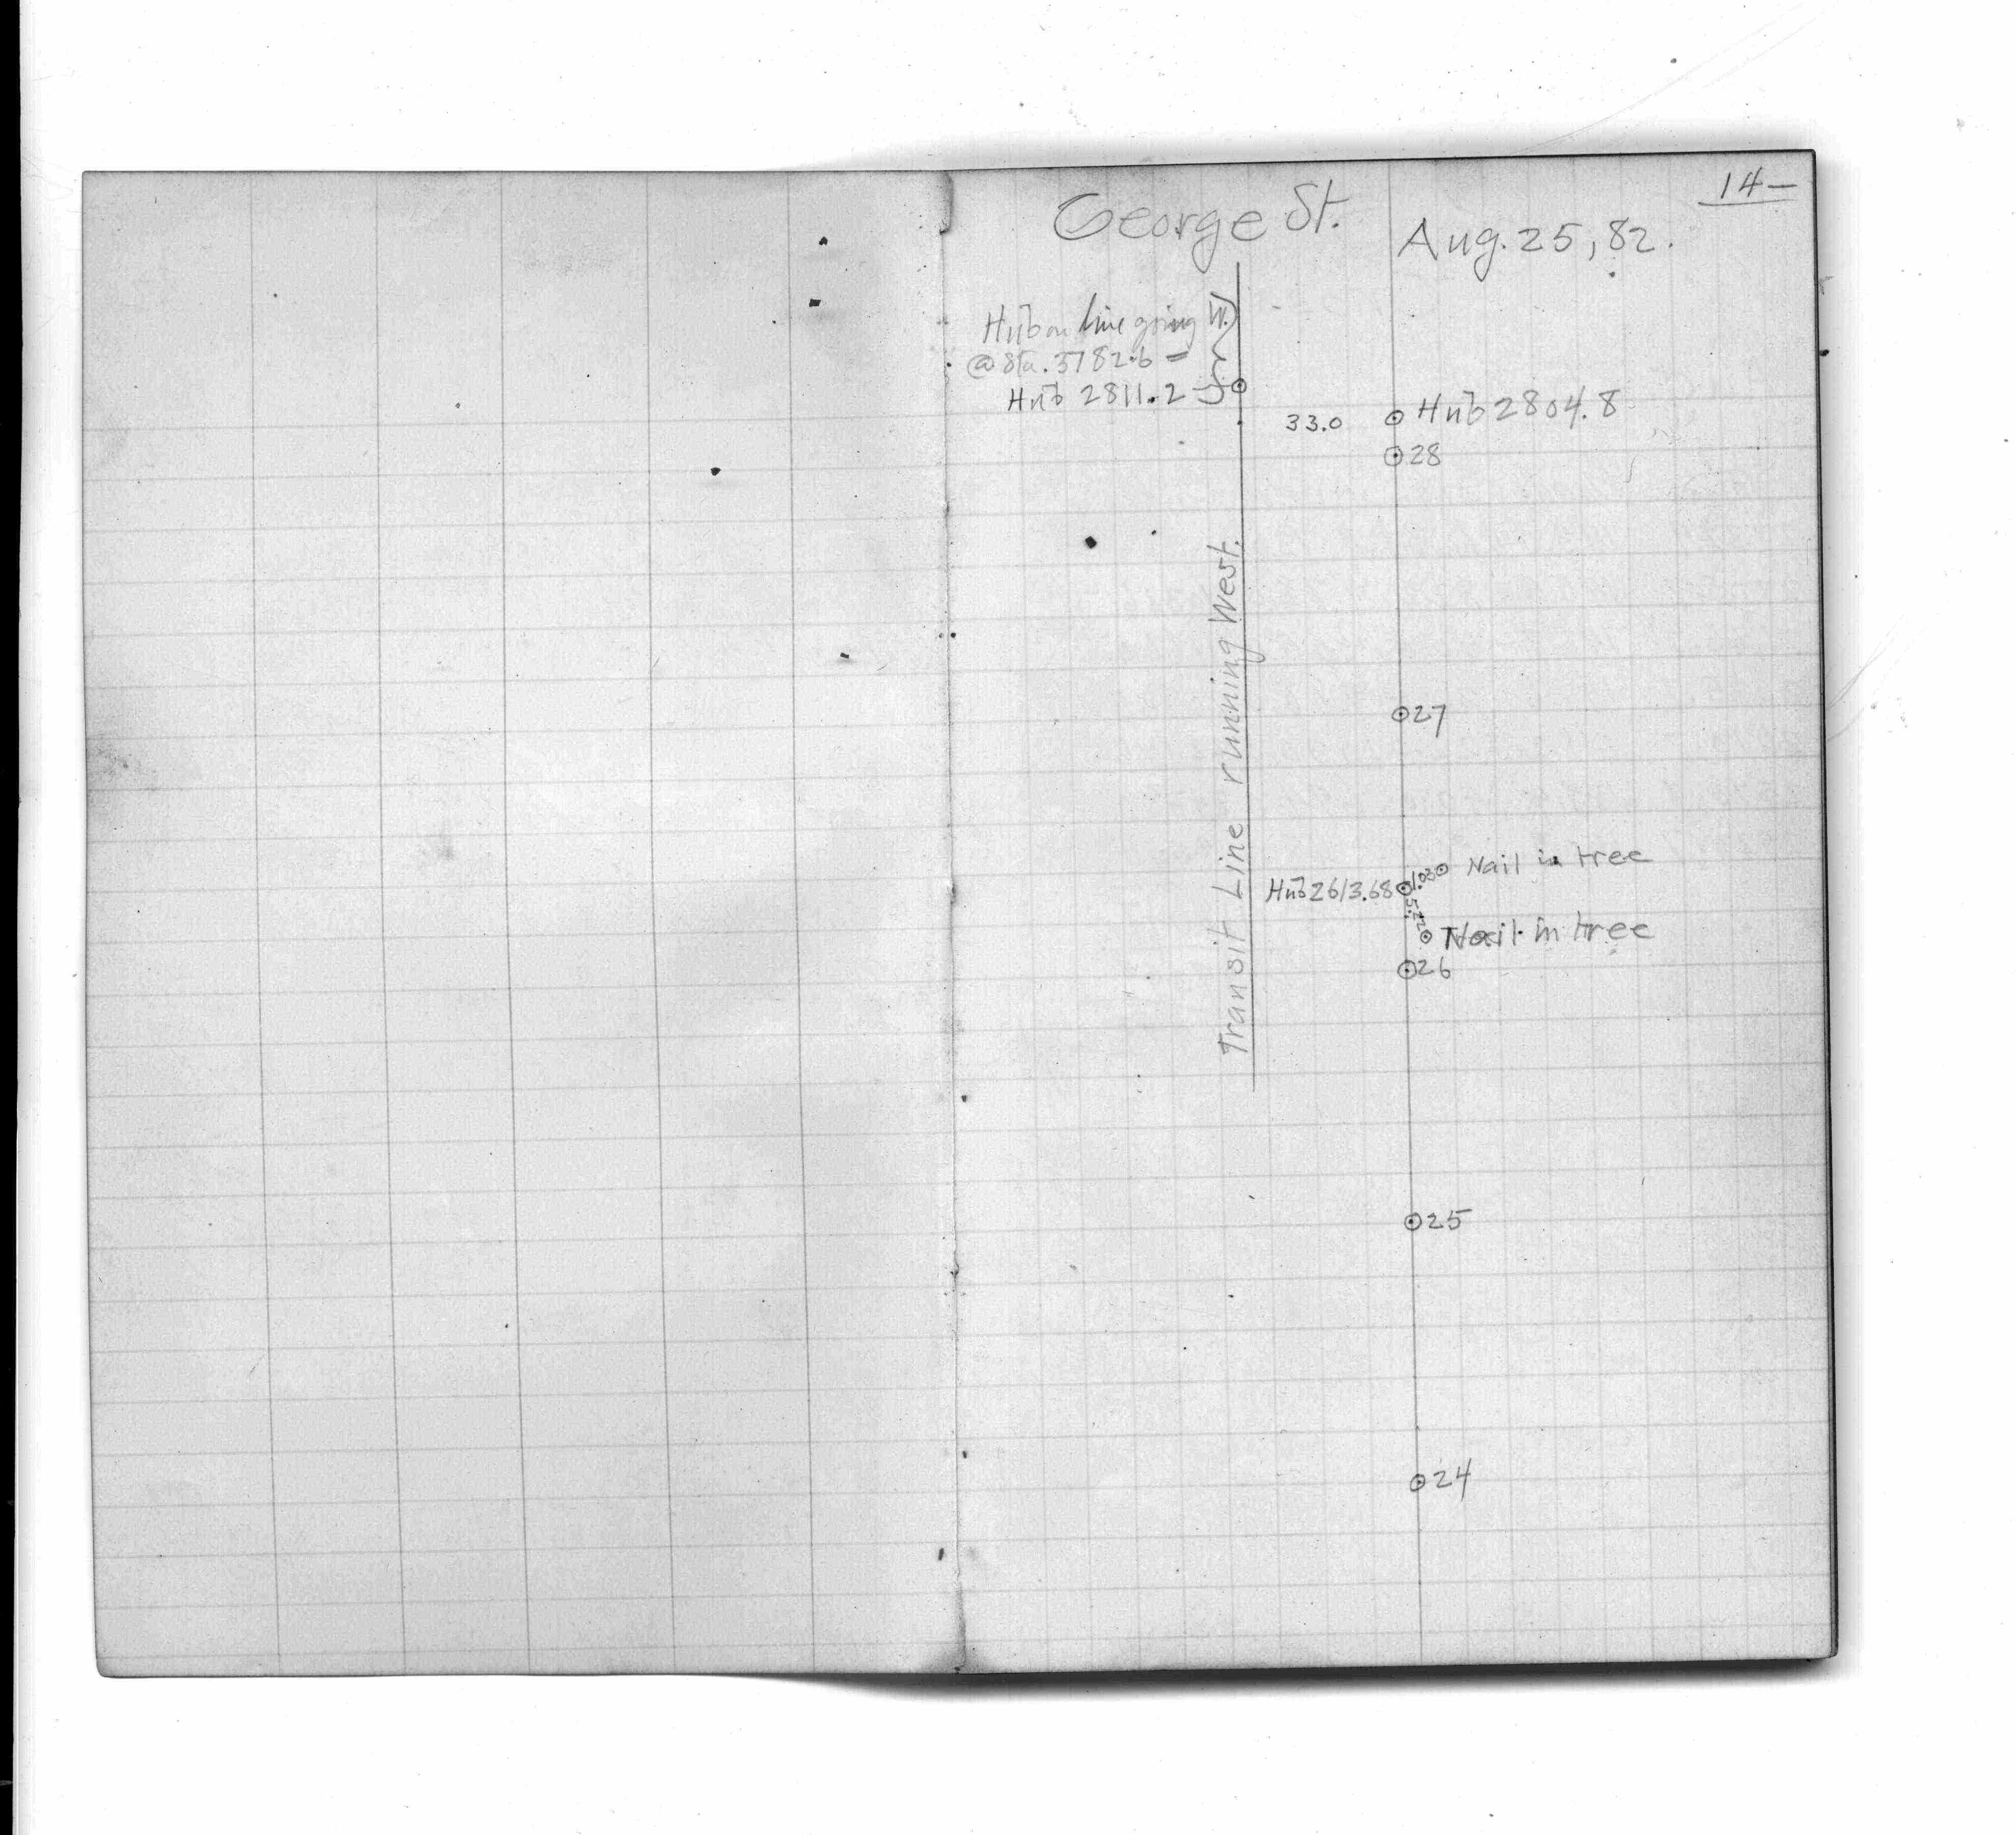 14—
George St.
Aug. 25, 82.
Hub on line going W.
@ Sta. 3782.6 =
Hub 2811.2
33.0
Hub 2804.8
28
Transit Line running West.
27
Nail in tree
1.03
Hub 2613.68
Nail in tree
26
25
24